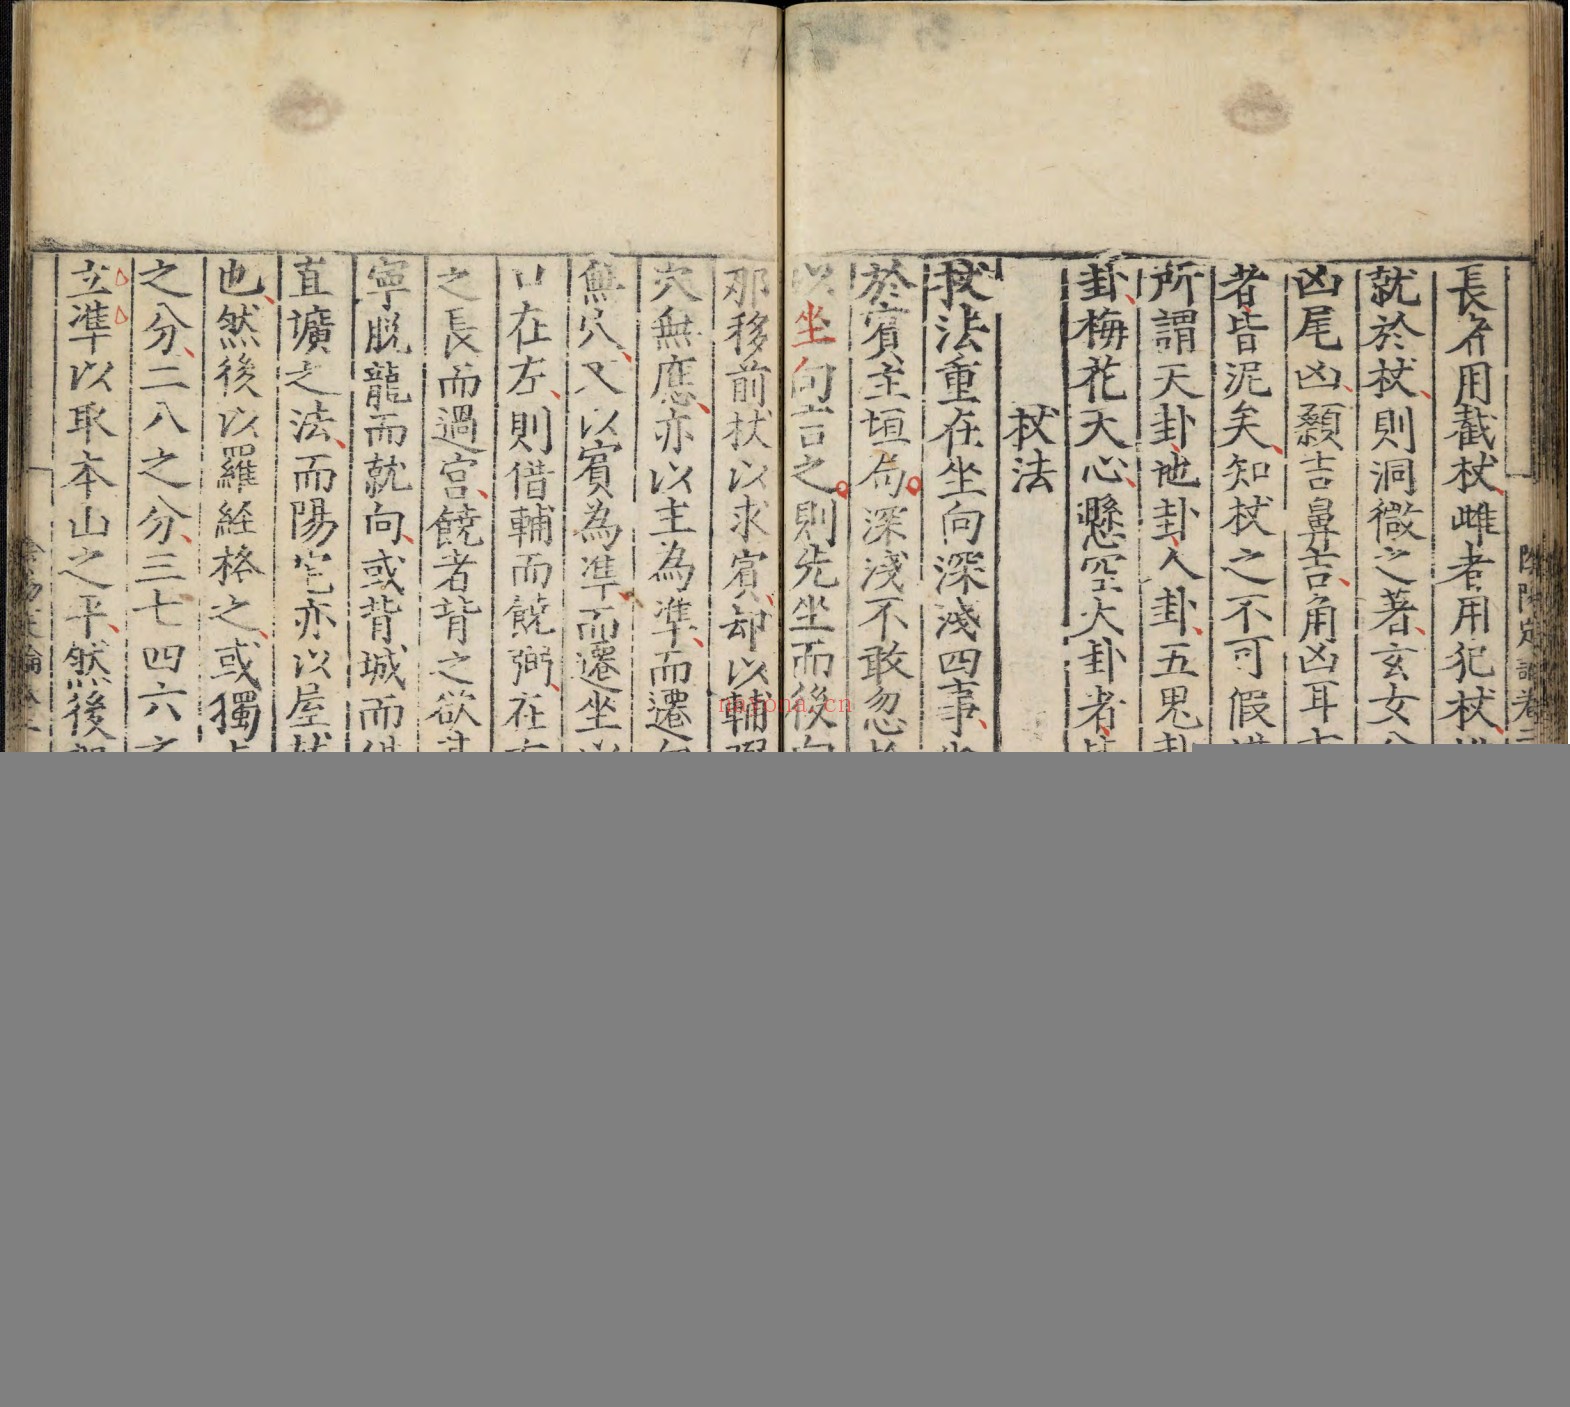 陰陽定論卷三
長者用截杖雌者用犯杖
就於杖則洞微之著玄女
凶尾凶顙吉鼻吉角凶耳
者皆泥矣知杖之不可假
所謂天卦地卦人卦五鬼卦
卦梅花天心懸空大卦者
杖法
杖法重在坐向深淺四事
於賓主垣局深淺不敢忽
以坐向言之則先坐而後向
那移前杖以求賓却以輔
穴無應亦以主為準而遷
無穴又以賓為準而遷坐
口在左則借輔而饒弼在
之長而過宮饒者背之欲
寧脫龍而就向或背城而
直壙之法而陽宅亦以屋
也然後以羅經格之或獨
之分二八之分三七四六之
立準以取本山之平然後
nmtona.cn